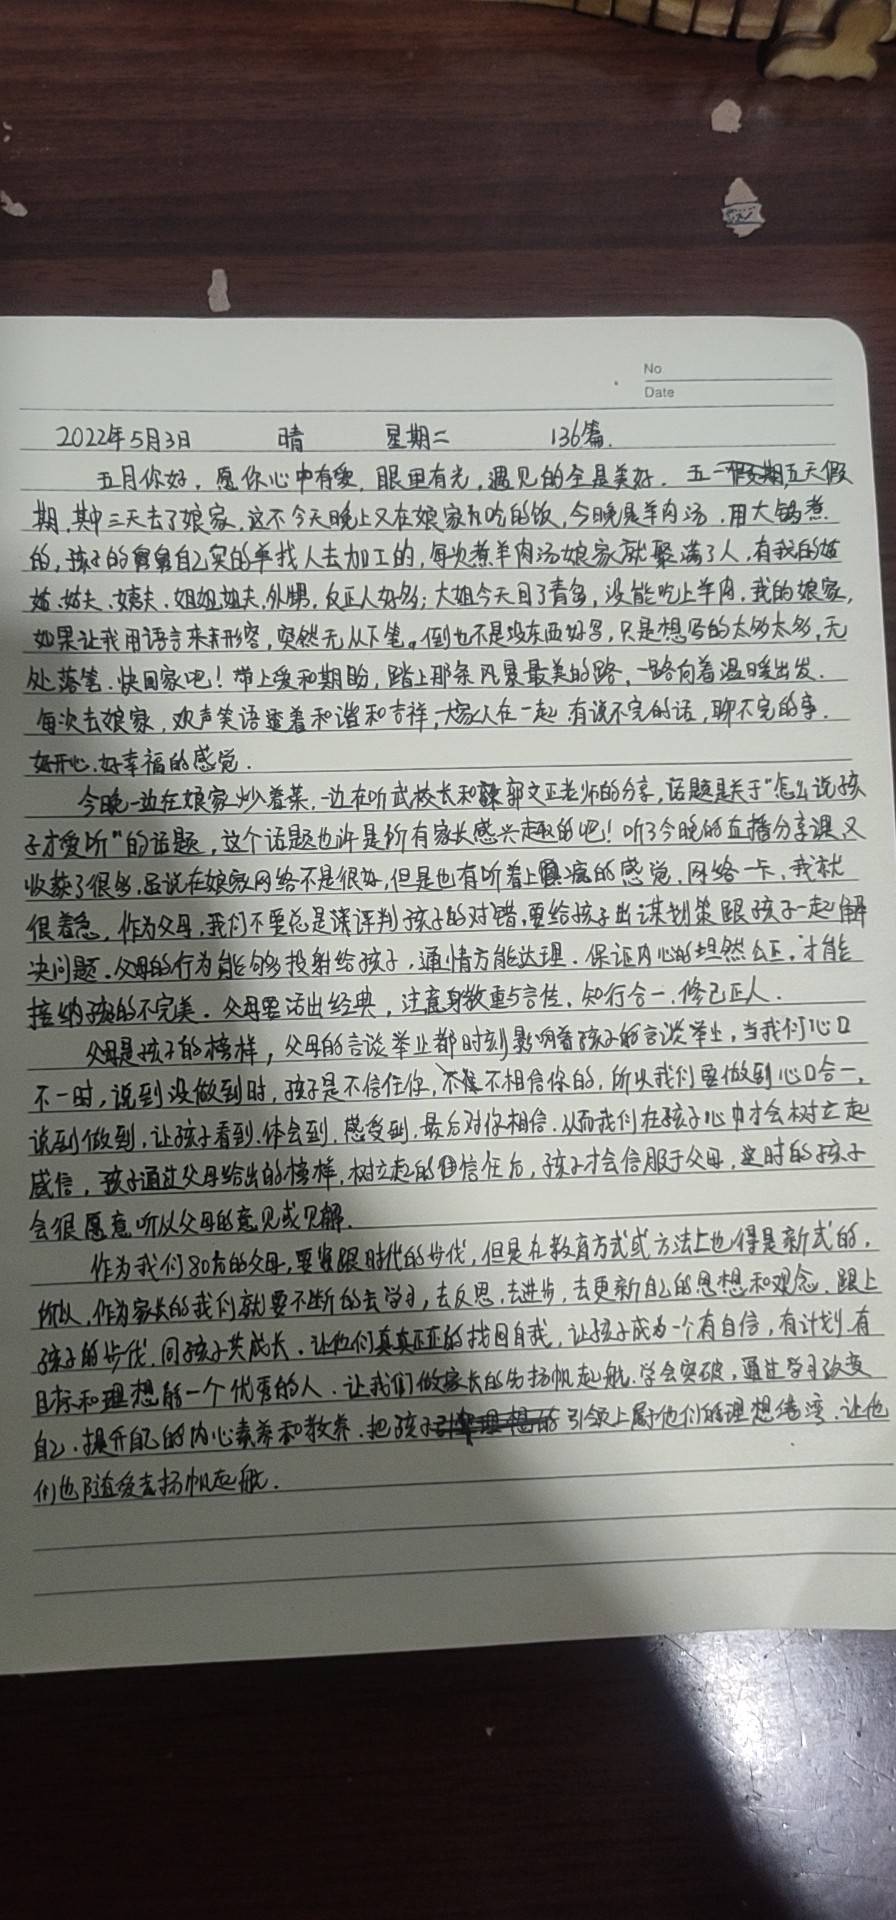 No
Date
2022年5月3日 晴 星期二 136篇.
五月你好，愿你心中有爱，眼里有光，遇见的全是美好．五一五天假
期，其中三天去了娘家，这不今天晚上又在娘家吃的饭，今晚是羊肉汤，用大锅煮
的，孩子的舅舅自己买的羊找人去加工的，每次煮羊肉汤娘家就聚满了人，有我的姑
姑、姑夫、姨夫、姐姐姐夫、外甥，反正人好多；大姐今天回了青岛，没能吃上羊肉．我的娘家，
如果让我用语言来形容，突然无从下笔。倒也不是没东西好写，只是想写的太多太多，无
处落笔．快回家吧！带上爱和期盼，踏上那条风景最美的路，一路向着温暖出发．
每次去娘家，欢声笑语透着和谐和吉祥，大家人在一起，有说不完的话，聊不完的事．
好开心，好幸福的感觉．
今晚一边在娘家炒着菜，一边在听武校长和郭文正老师的分享，话题是关于“怎么说孩
子才爱听”的话题，这个话题也许是所有家长感兴趣的吧！听了今晚的直播分享课，又
收获了很多．虽说在娘家网络不是很好，但是也有听着上瘾的感觉．网络一卡，我就
很着急，作为父母，我们不要总是评判孩子的对错，要给孩子出谋划策跟孩子一起解
决问题．父母的行为能够投射给孩子，通情方能达理．保证内心的坦然公正．才能
接纳孩的不完美．父母要活出经典，注意身教重与言传．知行合一．修己正人．
父母是孩子的榜样，父母的言谈举止都时刻影响着孩子的言谈举止，当我们心口
不一时，说到没做到时，孩子是不信任你，不相信你的，所以我们要做到心口合一，
说到做到，让孩子看到．体会到．感受到．最后对你相信．从而我们在孩子心中才会树立起
威信，孩子通过父母给出的榜样，树立起的信任后，孩子才会信服于父母，这时的孩子
会很愿意听从父母的意见或见解．
作为我们80后的父母，要紧跟时代的步伐，但是在教育方式或方法上也得是新式的，
所以，作为家长的我们就要不断的去学习，去反思，去进步，去更新自己的思想和观念．跟上
孩子的步伐．同孩子共成长．让他们真真正正的找回自我，让孩子成为一个有自信，有计划，有
目标和理想的一个优秀的人．让我们做家长的先扬帆起航．学会突破，通过学习改变
自己．提升自己的内心素养和教养．把孩子引领上属于他们的理想港湾．让他
们也随爱去扬帆起航．